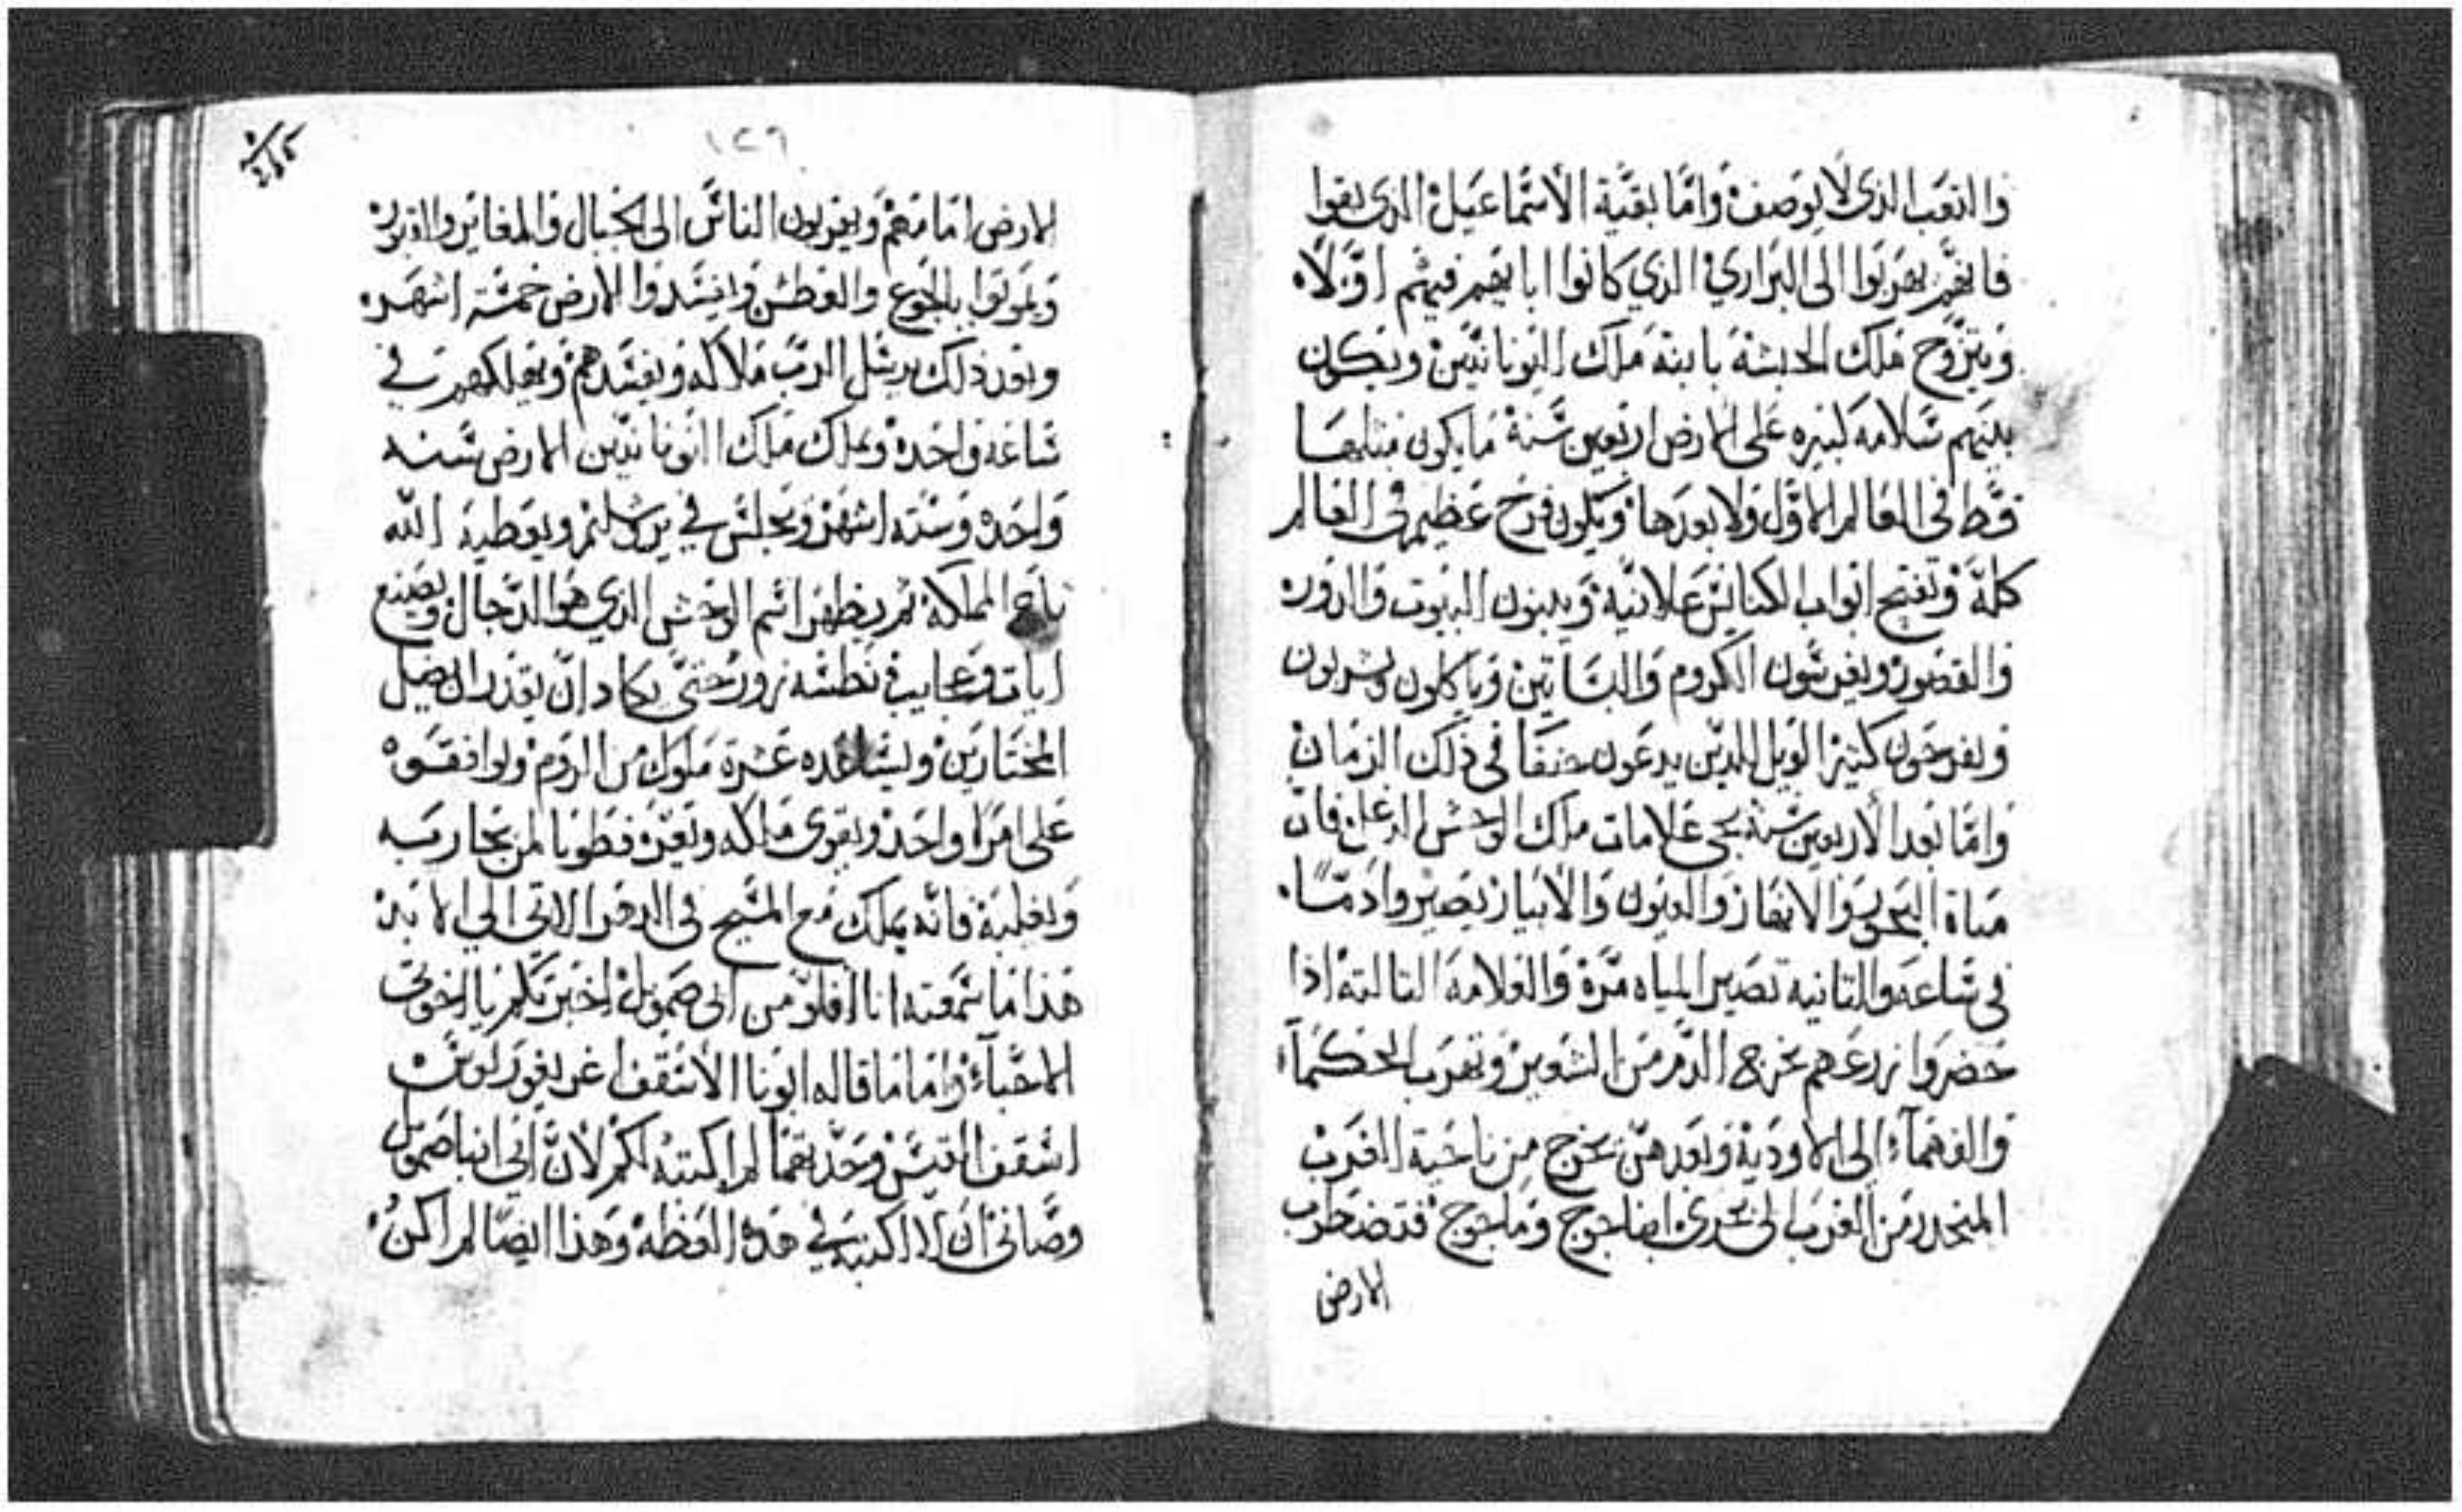 والتعب الذى لا يوصف وامّا بقيّة الاسماعيل الذى بقوا
فانهم يهربوا الى البرارى الذي كانوا ابايهم فيهم اوّلاً
ويتزوّج ملك الحبشة بابنة ملك اليونانيّين ويكون
بينهم سلامه كبيره على الارض اربعين سنة ما يكون مثلها
قط فى العالم الاوّل ولا بعدها ويكون فرح عظيم فى العالم
كلّه وتفتح ابواب الكنايس علانيّة ويبنون البيوت والدور
والقصور ويغرسون الكروم والبساتين وياكلون ويشربون
ويفرحون كثير الويل للذين يدعون حنفا فى ذلك الزمان
وامّا بعد الاربعين سنة يجى علامات ملك الوحش الدغل فان
مياة البحور والانهار والعيون والابيار يصيروا دمّاً
فى ساعه والتانية تصير المياه مرّة والعلامة التالتة اذا
حضروا زرعهم يخرج الدم من الشوين وتهرب الحكمآء
والفهمآء الى الاودية وبعد هن يخرج من ناحية الغرب
المنحدر من الغرب الى بحرى اجاجوج وماجوج فتضطرب
الارض
١٢٦
الارض امامهم ويهربون الناس الى الجبال والمغاير والقبور
ويموتوا بالجوع والعطش وافسدوا الارض خمسة اشهر
وبعد ذلك يرسل الرب ملاكه ويفسدهم ويهلكهم في
ساعه واحده ويملك ملك اليونانيّين الارض سنه
واحده وستة اشهر ويجلس في يرشليم ويعطية الله
تاج المملكة ثم يظهر اسم الوحش الذي هو الدجال ويصنع
ايات وعجايب في بطشه زور حتّى يكاد انّ يقدر ان يضل
المختارين ويساعده عشرة ملوك من الروم ويوافقوه
على امرًا واحد ويقوى ملكه ويعز فطوبا لمن يحاربه
ويغلبة فانه يملك مع المسيح فى الدهر الاتى الي الابد
هذا ما سمعته انا افلوّ من ابى صمويل اخبرتكم يا اخوتى
الاحبّآء واما ما قاله ابونا الاسقف اغريغوريوس
اسقف القيس وحديثهما لم اكتبه لكم لانّ ابى انبا صمويل
وصّانى ان لا اكتبه في هذه العظه وهذا ايضًا لم اكن